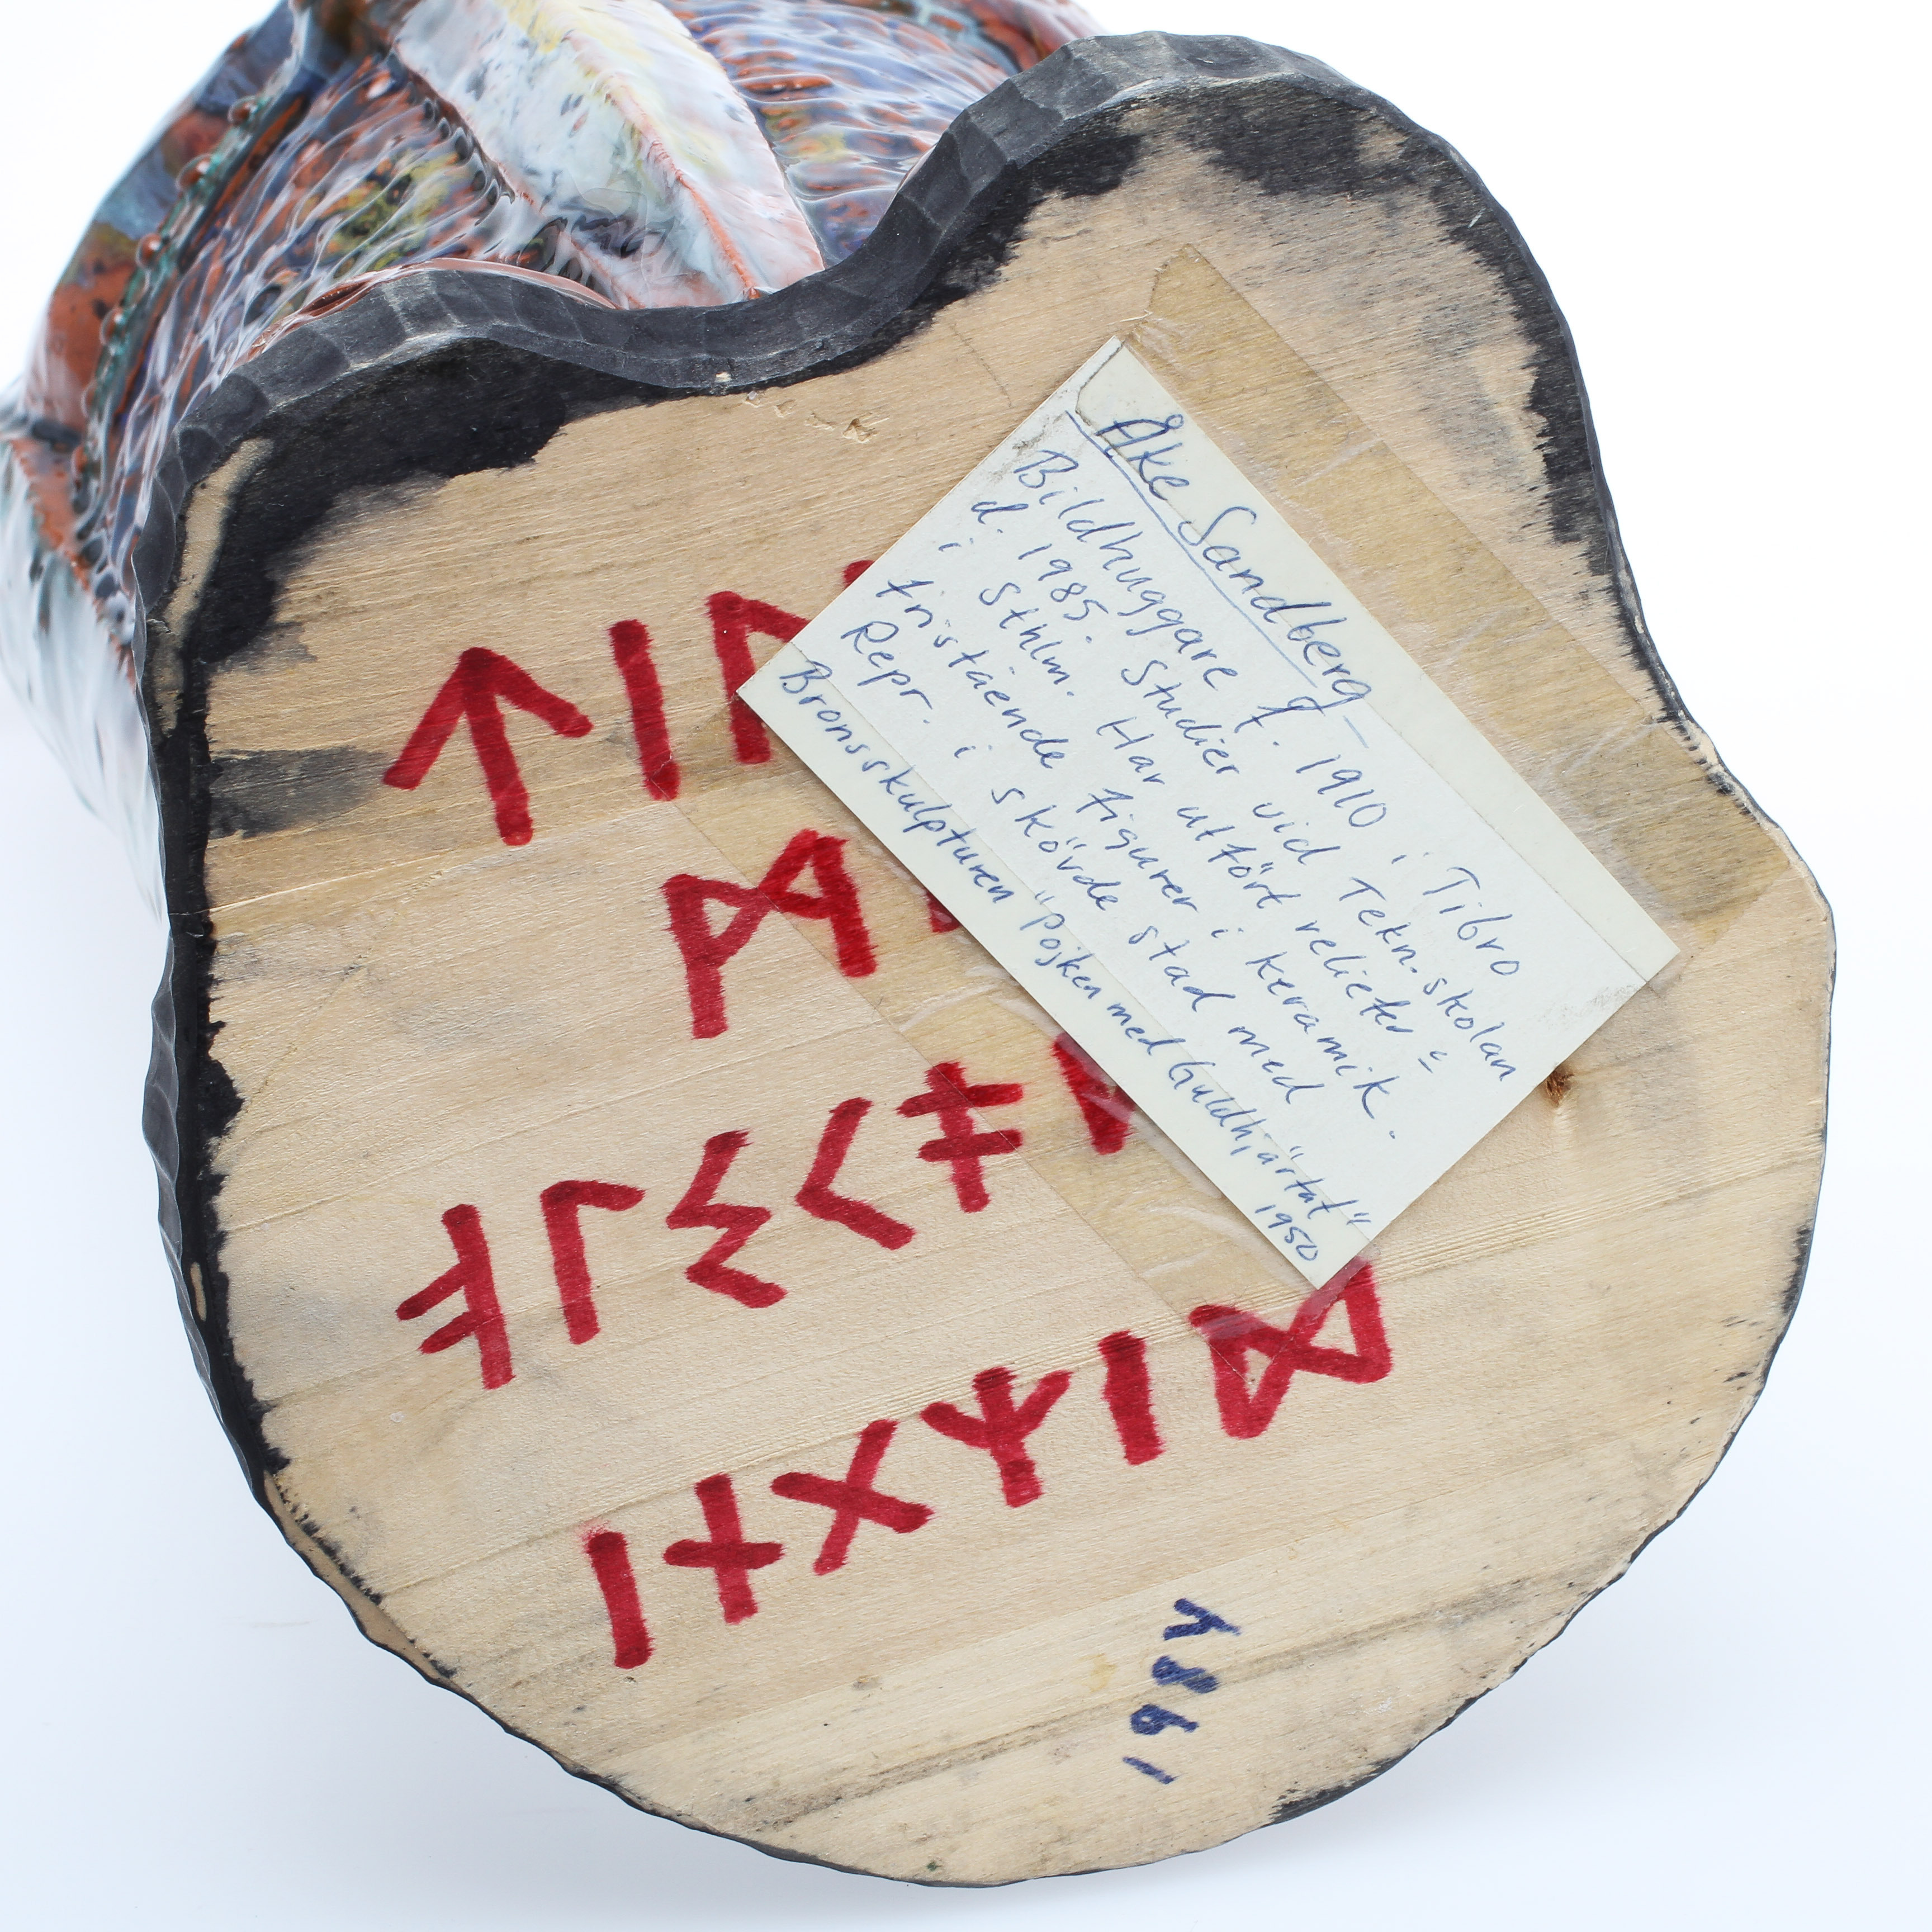 ᛏᛁᛚ
ᛗ
ᛚᛊᚲ
ᛁᚾᚷᛉᛁᛞ
Åke Sandberg
Bildhuggare f. 1910 i Tibro
d. 1985. Studier vid Tekn. skolan
i Sthlm. Har utfört reliefer
fristående figurer i keramik.
Repr. i Skövde stad med
Bronsskulpturen "Pojken med Guldhjärtat"
1950